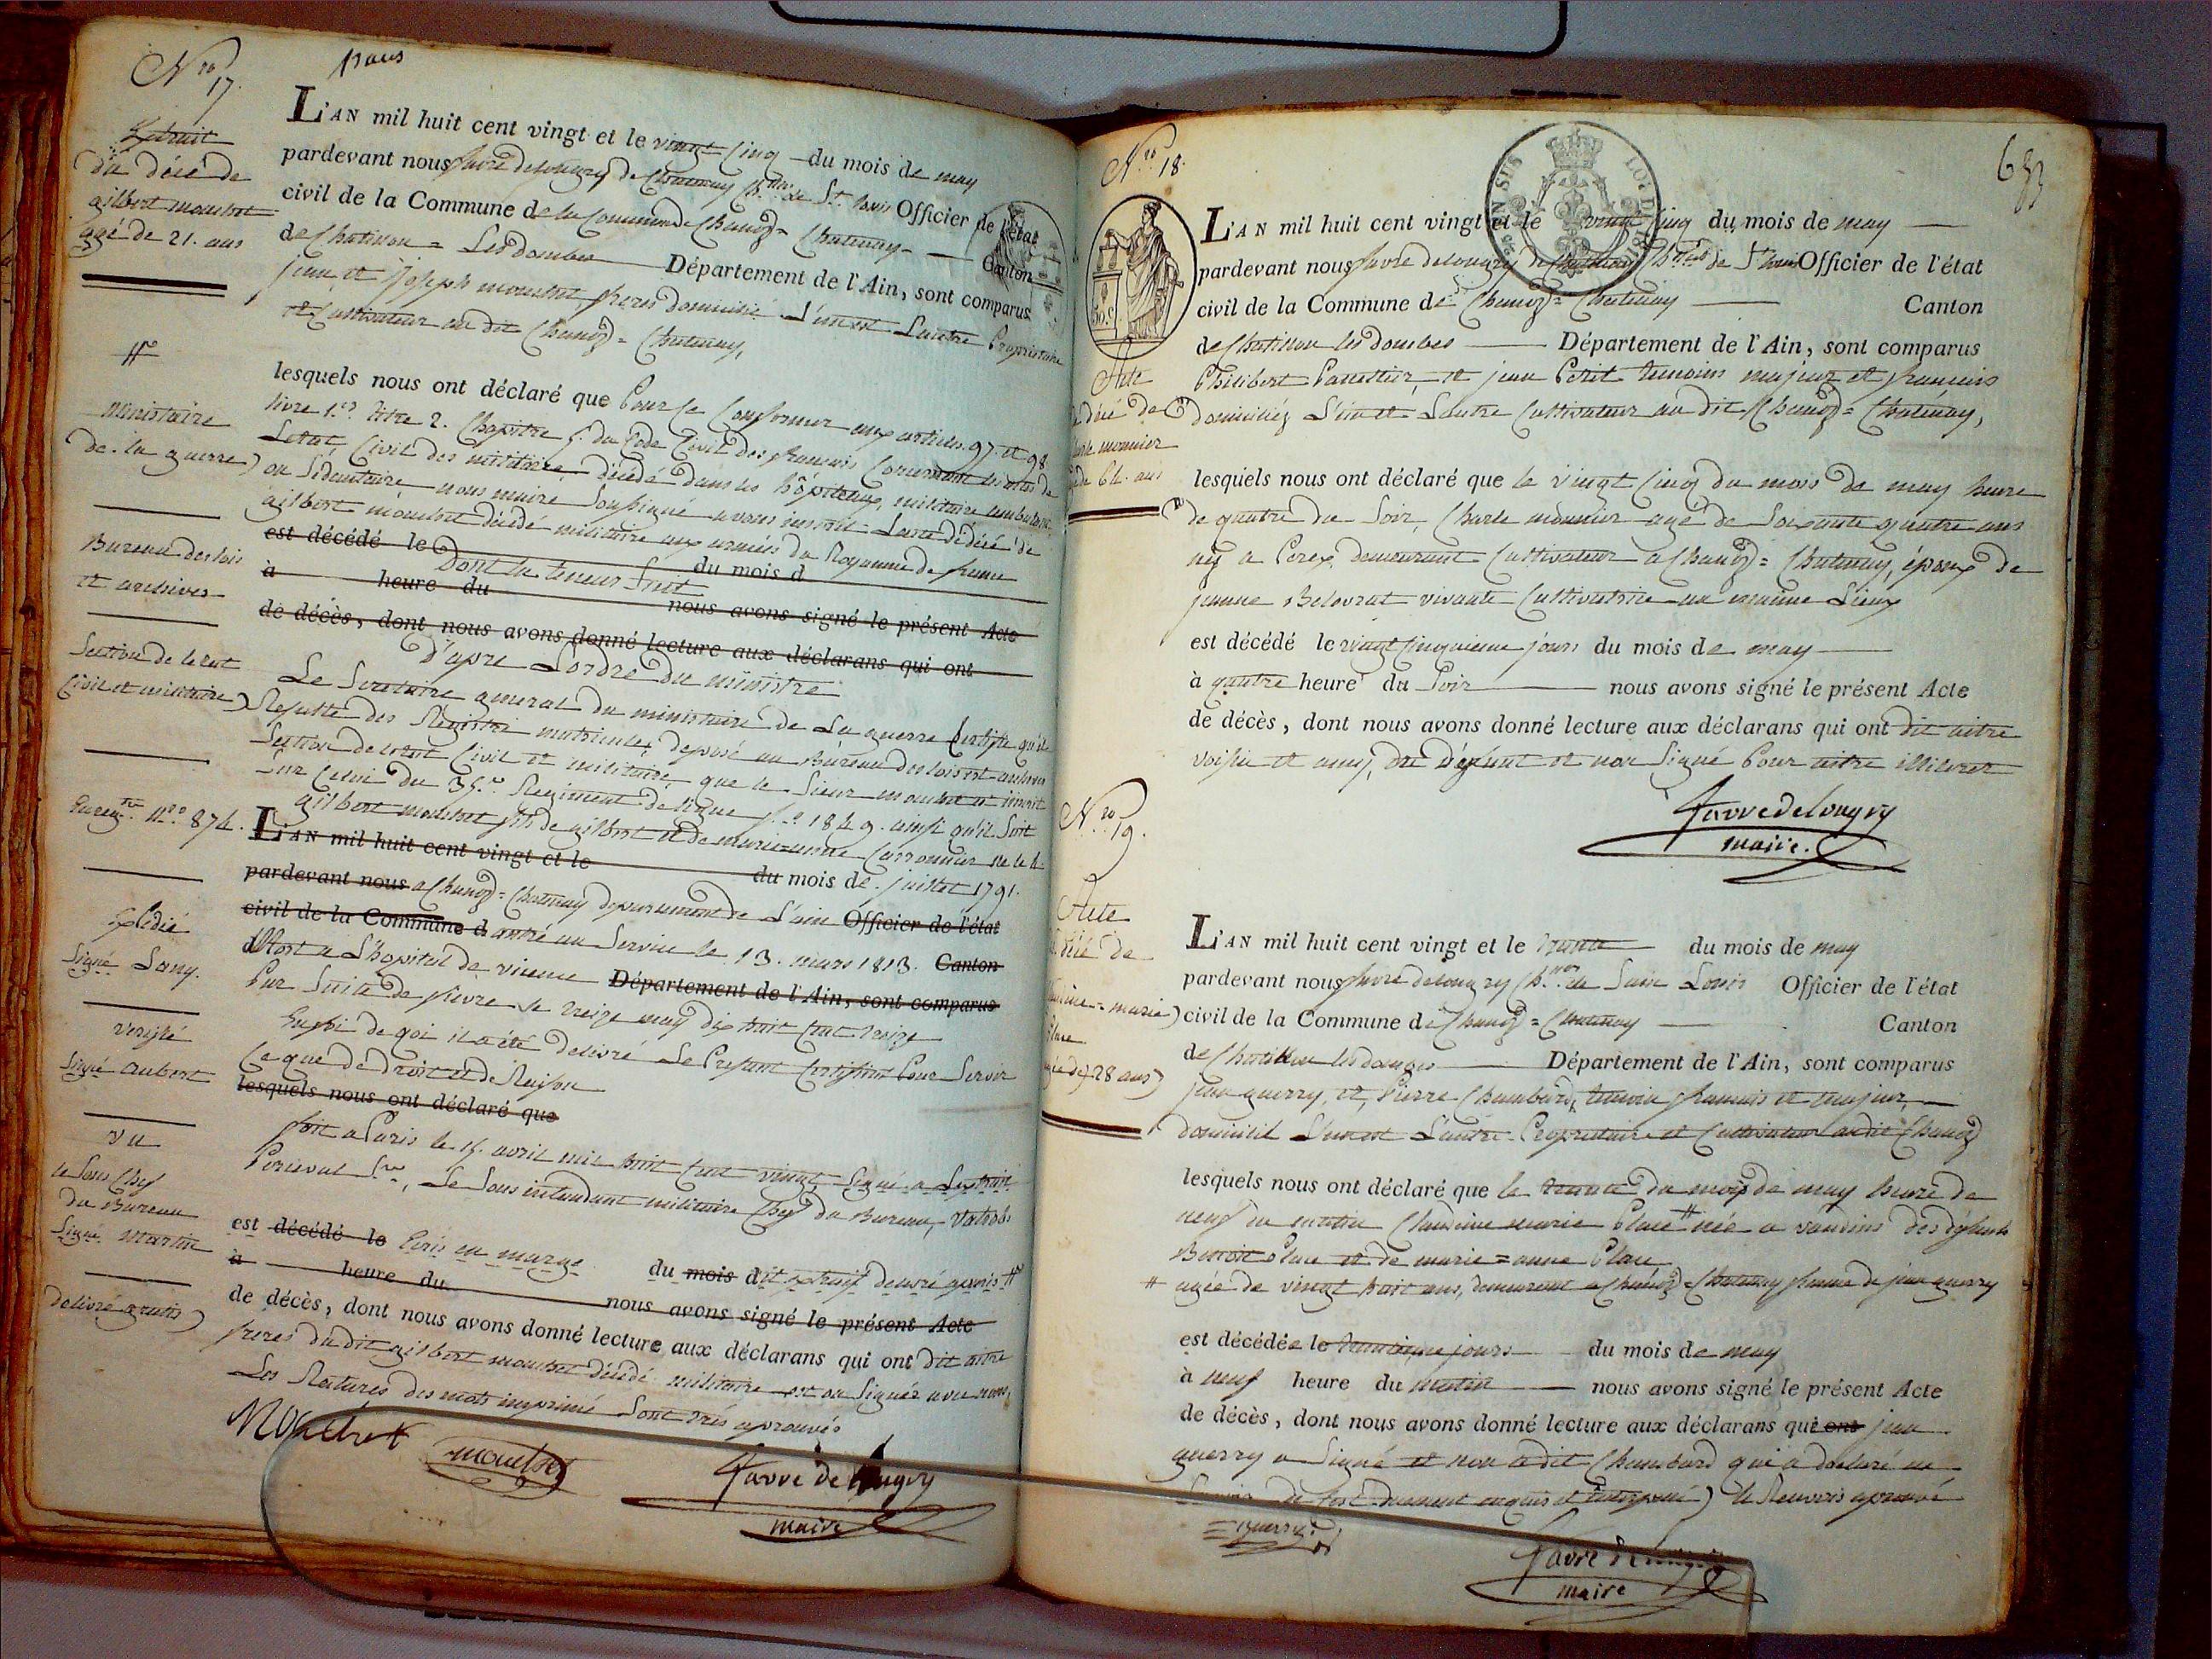 Nro 17.
Extrait
du décé de
gilbert mouchet
agé de 21. ans
L'AN mil huit cent vingt et le vingt Cinq du mois de may
pardevant nous favre delongry de Chatenay Ch.er de St. Louis Officier de l'état
civil de la Commune de la Commune de Chanoz= Chatenay Canton
de Chatillon = Les dombes Département de l'Ain, sont comparus
jean et joseph mouchet freres domicilié L'un et Lautre Propriétaire
et Cultivateur au dit Chanoz= Chatenay,
lesquels nous ont déclaré que Pour se Conformer aux articles 97. et 98.
livre 1.er titre 2. Chapitre 5. du Code Civil des francais Concernant les actes de
Letat Civil des militaire décédé dans les hôpiteaux militaire ambulant
ou Sédentaire nous maire Soussigné avons inscrit Lacte de décé de
gilbert mouchet décédé militaire aux armées du Royaume de france
est décédé le du mois d
Dont la teneur Suit
à heure du nous avons signé le présent Acte
de décès, dont nous avons donné lecture aux déclarans qui ont
ministaire
de la guerre
Bureau des lois
et archives
Section de letat
Civil et militaire
d'apre Lordre du ministre
Le Secretaire general du ministaire de La guerre Certifie qu'il
Resulte des Registre matricules deposé au Bureau des lois et archives
Section de letat Civil et militaire que le Sieur mouchet est inscrit
Sur Celui du 35.e Regiment de ligne n.o 1849. ainsi qu'il Suit
gilbert mouchet fils de gilbert et de marie=anne Carronnier né le
Enreg.tre Nro. 874.
L'AN mil huit cent vingt et le du mois de juillet 1791.
pardevant nous a Chanoz= Chatenay departement de L'ain Officier de l'état
civil de la Commune d entré au Service le 13. mars 1813. Canton
d Mort a L'hopital de vicence Département de l'Ain, sont comparus
Par Suite de fievre le treize may dix huit Cent treize
Enfoi de qoi il a été delivré Le Present Certificat Pour Servir
Ce que de Droit et de Raison
lesquels nous ont déclaré que
Expedié
Signé Lany.
verifié
Signé aubert
vu
le Sous Chef
du Bureau
Signé martin
delivré gratis
fait a Paris le 15. avril mil huit Cent vingt Signé a Lextrait
Perceval Sre, Le Sous intendant militaire Chef du Bureau,
est décédé le Ecris en marge du mois dit extrait delivré gratis
à heure du nous avons signé le présent Acte
de décès, dont nous avons donné lecture aux déclarans qui ont dit aitre
freres du dit gilbert mouchet décédé militaire et on Signés avec nous,
Les Ratures des mots imprimé Sont aprouvés
Mouchet mouchet favre de longry
maire
Nro 18.
Acte
de décé de
Charle monnier
agé de 64. ans
L'AN mil huit cent vingt et le vingt Cinq du mois de may
pardevant nous favre delongry de Chatenay Ch.er de St Louis Officier de l'état
civil de la Commune de Chanoz= Chatenay Canton
de Chatillon les dombes Département de l'Ain, sont comparus
Philibert Panettier et jean Petit temoins majeur et francais
domiciliéz L'un et Lautre Cultivateur au dit Chanoz= Chatenay,
lesquels nous ont déclaré que le vingt Cinq du mois de may heure
de quatre du Soir Charle monnier agé de Soixante quatre ans
néz a Perex demeurant Cultivateur a Chanoz= Chatenay, époux de
jeanne Belouzat vivante Cultivatrice au maime Lieux
est décédé le vingt Cinquieme jours du mois de may
à quatre heure du Soir nous avons signé le présent Acte
de décès, dont nous avons donné lecture aux déclarans qui ont dit aitre
voisin et amis, du Défunt et non Signé Pour aitre illiterez
favre delongry
maire.
Nro 19.
Acte
de décé de
Claudine=marie
Place
agée de 28 ans
L'AN mil huit cent vingt et le trente du mois de may
pardevant nous favre delongry Ch.er de Sain Louis Officier de l'état
civil de la Commune de Chanoz= Chatenay Canton
de Chatillon les dombes Département de l'Ain, sont comparus
jean guerry, et, Pierre Chambard, temoin francais et majeur,
domicilié L'un et L'autre Propriétaire et Cultivateur audit Chanoz
lesquels nous ont déclaré que le trente du mois de may heure de
neuf du matin Claudine marie Place # née a vandins des défunts
Benoit Place et de marie=anne Place
# agée de vingt huit ans, demeurant a Chanoz= Chatenay femme de jean guerry
est décédée le trentieme jours du mois de may
à neuf heure du matin nous avons signé le présent Acte
de décès, dont nous avons donné lecture aux déclarans qui ont jean
guerry a Signé et non ledit Chambard qui a declaré ne
Savoir de ce enquis et interpellé le Renvois aprouvé
guerry favre delongry
maire